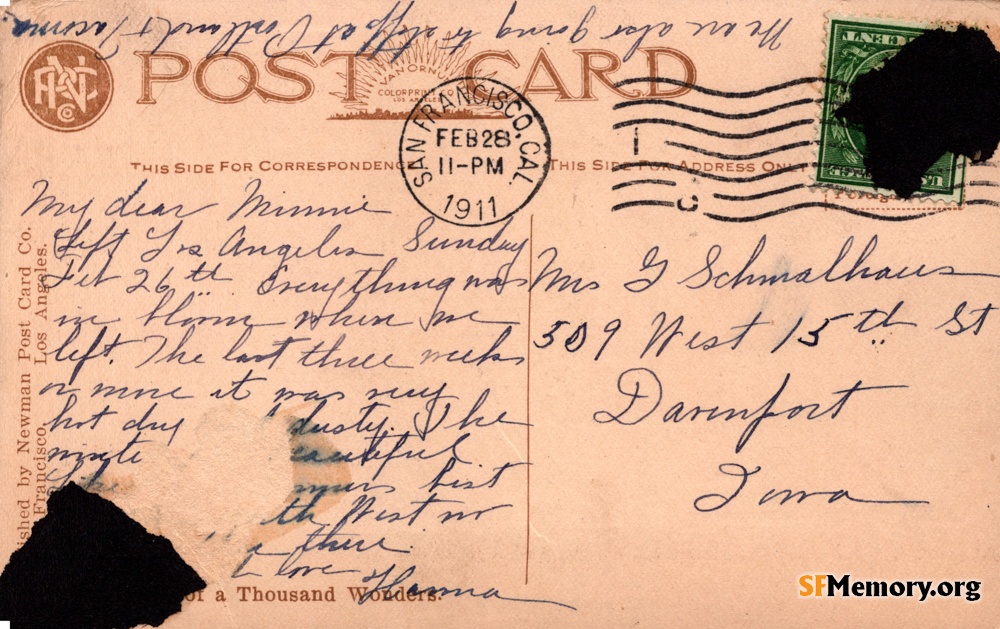 We are also going to stop at Portland & Tacoma.
POST CARD
VAN ORNUM
COLORPRINT CO
LOS ANGELES
CENT
SAN FRANCISCO, CAL.
FEB 28
11-PM
1911
THIS SIDE FOR CORRESPONDENCE
THIS SIDE FOR ADDRESS ONLY
My dear Minnie
Left Los Angeles Sunday
Feb 26th Everything was
in bloom when we
left. The last three weeks
or more it was very
hot dry dusty. The
winter beautiful
best
th West
there
love Hanna
Mrs G Schmalhaus
509 West 15th St
Davenport
Iowa
ished by Newman Post Card Co.
Francisco. Los Angeles.
of a Thousand Wonders.
SFMemory.org